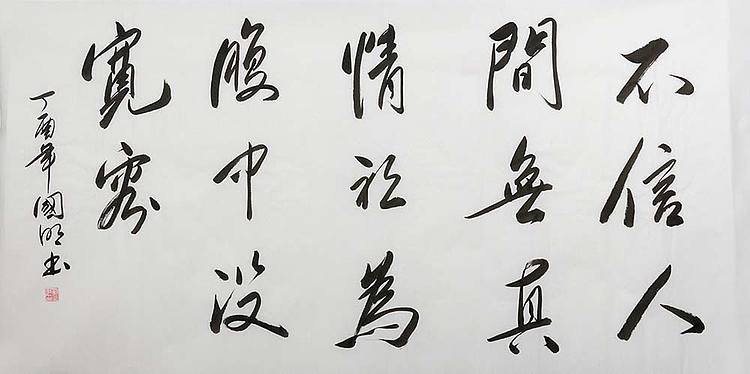 不信人
間無真
情祇為
腹中沒
寬容
丁酉年國明書